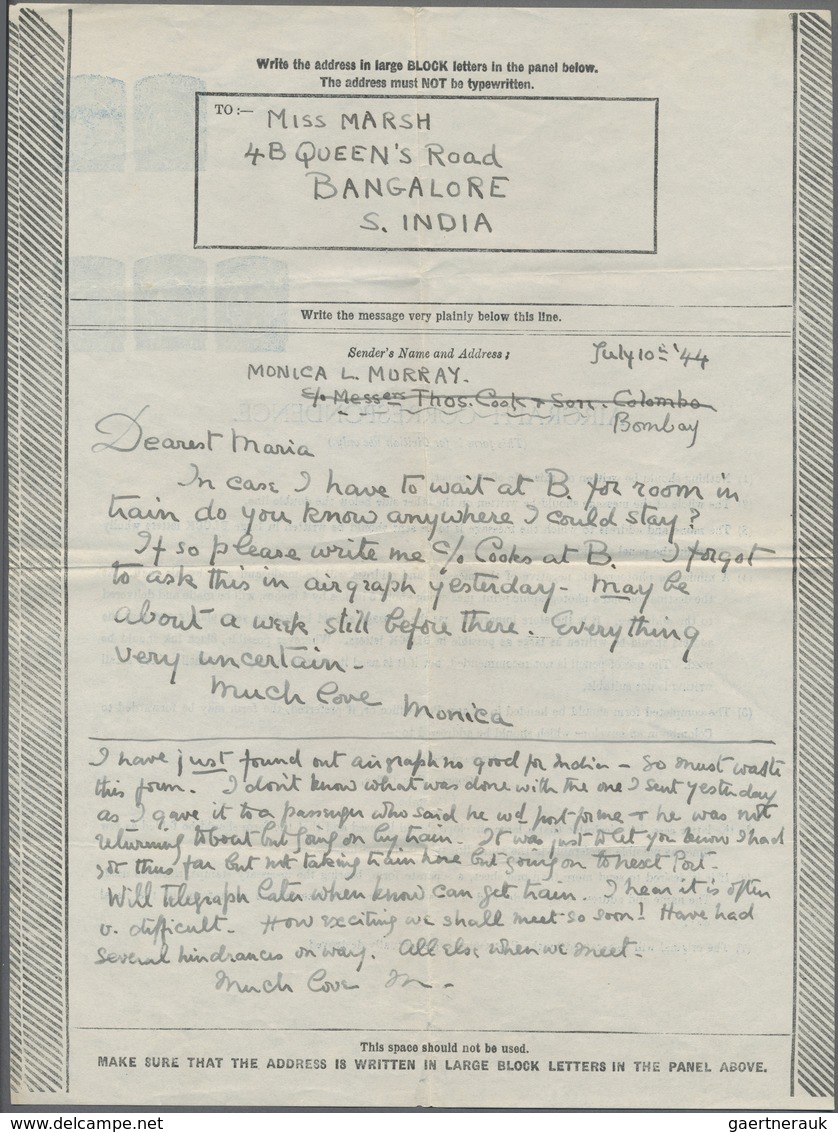 Write the address in large BLOCK letters in the panel below.
The address must NOT be typewritten.
TO :—
MISS MARSH
4B QUEEN'S Road
BANGALORE
S. INDIA
Write the message very plainly below this line.
Sender's Name and Address :
July 10th '44
MONICA L. MURRAY.
c/o Messers Thos. Cook & Son. Colombo
Bombay
Dearest Maria
In case I have to wait at B. for room in
train do you know anywhere I could stay?
If so please write me c/o Cooks at B. I forgot
to ask this in airgraph yesterday - May be
about a week still before there. Everything
very uncertain -
Much Love
Monica
I have just found out airgraph no good for India - so must waste
this form. I don't know what was done with the one I sent yesterday
as I gave it to a passenger who said he wd post for me & he was not
returning to boat but going on by train. It was just to let you know I had
got thus far but not taking train here but going on to next Port.
Will telegraph later when know can get train. I hear it is often
v. difficult. How exciting we shall meet so soon! Have had
several hindrances on way. All else when we meet -
Much Love M -
This space should not be used.
MAKE SURE THAT THE ADDRESS IS WRITTEN IN LARGE BLOCK LETTERS IN THE PANEL ABOVE.
gaertnerauk
www.delcampe.net